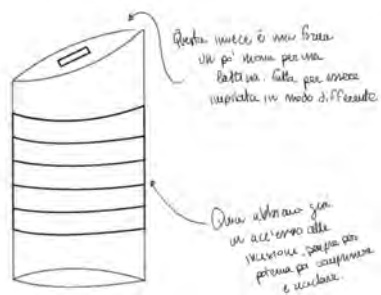 Questa invece è una forma
un po' nuova per una
lattina. Fatta per essere
impilata in modo differente
Qui abbiamo già
un accenno alle
incisione, sempre per
poterla poi comprimere
e riciclare.